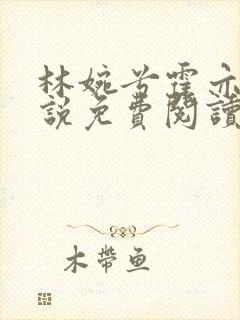 林婉兮霍亦
說免費閱讀
木帶魚